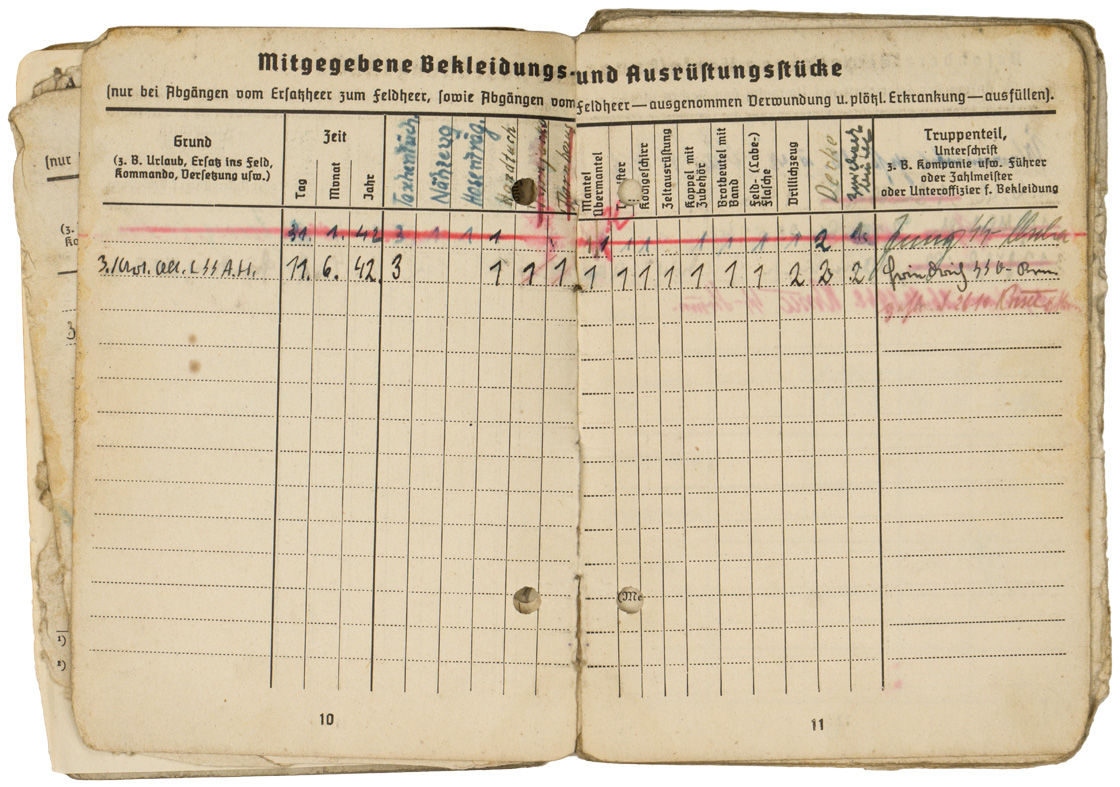 Mitgegebene Bekleidungs- und Ausrüstungsstücke
(nur bei Abgängen vom Ersatzheer zum Feldheer, sowie Abgängen vom Feldheer — ausgenommen Verwundung u. plötzl. Erkrankung — ausfüllen).
Grund
(z. B. Urlaub, Ersatz ins Feld,
Kommando, Versetzung usw.)
Zeit
Tag
Monat
Jahr
Nähzeug
Mantel
Übermantel
Kochgeschirr
Zeltausrüstung
Koppel mit
Zubehör
Brotbeutel mit
Band
Feld- (Labe-)
flasche
Drillichzeug
Decke
Truppenteil,
Unterschrift
z. B. Kompanie usw. Führer
oder Zahlmeister
oder Unteroffizier f. Bekleidung
31. 1. 42 3 1 1 1 1 1 1 1 1 1 1 2 1
11. 6. 42. 3 1 1 1 1 1 1 1 1 1 1 2 2 2
(nur
(z.
1)
2)
(Me
10
11